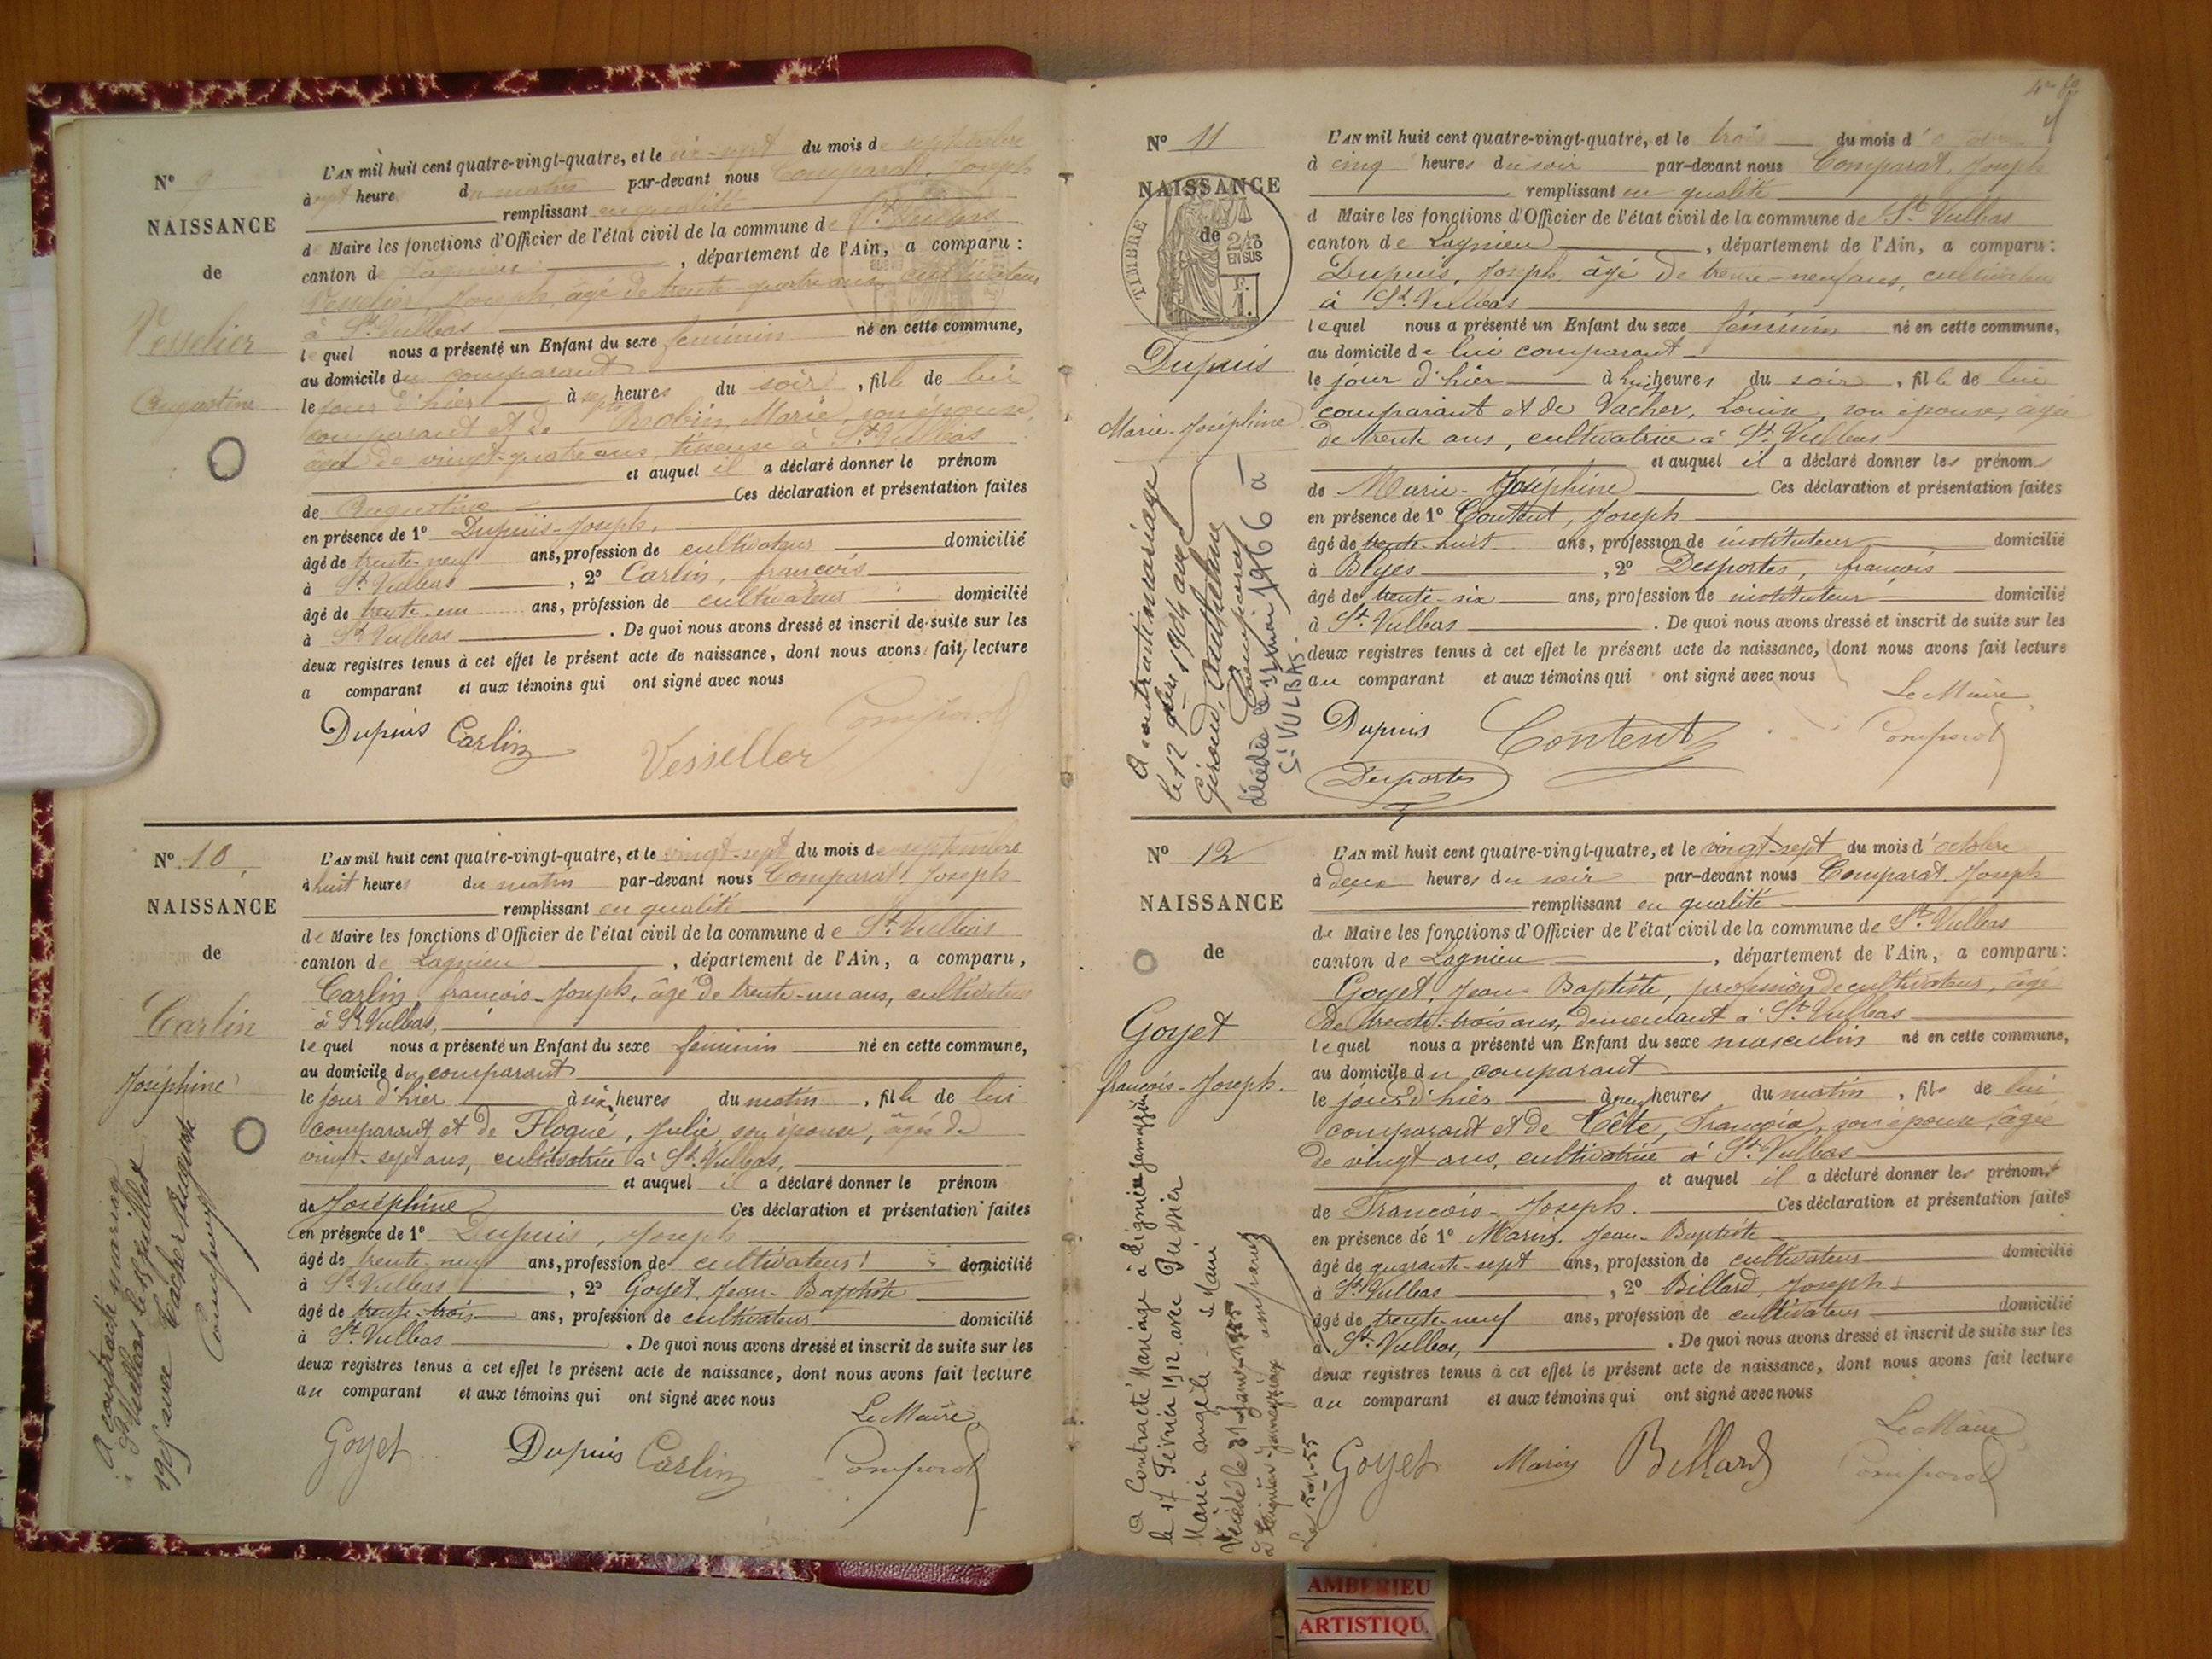 N° 9
NAISSANCE
de
Vesselier
Augustine
L'AN mil huit cent quatre-vingt-quatre, et le dix-sept du mois de septembre
à sept heures du matin par-devant nous Comparat, Joseph
remplissant en qualité
de Maire les fonctions d'Officier de l'état civil de la commune de St Vulbas
canton de Lagnieu, département de l'Ain, a comparu:
Vesselier, Joseph, âgé de trente-quatre ans, cultivateur
à St Vulbas
lequel nous a présenté un Enfant du sexe féminin né en cette commune,
au domicile du comparant
le jour d'hier à sept heures du soir, fille de lui
comparant et de Robin, Marie, son épouse,
âgée de vingt-quatre ans, tisseuse à St Vulbas
et auquel il a déclaré donner le prénom
de Augustine Ces déclaration et présentation faites
en présence de 1° Dupuis Joseph,
âgé de trente-neuf ans, profession de cultivateur domicilié
à St Vulbas, 2° Carlin, françois
âgé de trente-un ans, profession de cultivateur domicilié
à St Vulbas. De quoi nous avons dressé et inscrit de suite sur les
deux registres tenus à cet effet le présent acte de naissance, dont nous avons fait lecture
a comparant et aux témoins qui ont signé avec nous
Dupuis Carlin Vesselier Comparat
N° 10
NAISSANCE
de
Carlin
Joséphine
A contracté mariage
à St Vulbas le 8 juillet
1905 avec Vacher Auguste
L'AN mil huit cent quatre-vingt-quatre, et le vingt-sept du mois de septembre
à huit heures du matin par-devant nous Comparat, Joseph
remplissant en qualité
de Maire les fonctions d'Officier de l'état civil de la commune de St Vulbas
canton de Lagnieu, département de l'Ain, a comparu,
Carlin, françois-Joseph, âgé de trente-un ans, cultivateur
à St Vulbas,
lequel nous a présenté un Enfant du sexe féminin né en cette commune,
au domicile du comparant
le jour d'hier à six heures du matin, fille de lui
comparant et de Floque, Julie, son épouse, âgée de
vingt-sept ans, cultivatrice à St Vulbas,
et auquel il a déclaré donner le prénom
de Joséphine Ces déclaration et présentation faites
en présence de 1° Dupuis, Joseph
âgé de trente-neuf ans, profession de cultivateur domicilié
à St Vulbas, 2° Goyet, Jean-Baptiste
âgé de trente-trois ans, profession de cultivateur domicilié
à St Vulbas. De quoi nous avons dressé et inscrit de suite sur les
deux registres tenus à cet effet le présent acte de naissance, dont nous avons fait lecture
au comparant et aux témoins qui ont signé avec nous
Le Maire
Goyet Dupuis Carlin Comparat
N° 11
NAISSANCE
de
TIMBRE
2/10
EN SUS
Dupuis
Marie-Joséphine
A contracté mariage
le 12 9bre 1904 avec
Giroud, Anthelme
Comparat
décédée le mai 1966 à
St VULBAS.
L'AN mil huit cent quatre-vingt-quatre, et le trois du mois d'octobre
à cinq heures du soir par-devant nous Comparat, Joseph
remplissant en qualité
d Maire les fonctions d'Officier de l'état civil de la commune de St Vulbas
canton de Lagnieu, département de l'Ain, a comparu:
Dupuis, Joseph, âgé de trente-neuf ans, cultivateur
à St Vulbas
lequel nous a présenté un Enfant du sexe féminin né en cette commune,
au domicile de lui comparant
le jour d'hier à huit heures du soir, fille de lui
comparant et de Vacher, Louise, son épouse, âgée
de trente ans, cultivatrice à St Vulbas
et auquel il a déclaré donner les prénoms
de Marie-Joséphine Ces déclaration et présentation faites
en présence de 1° Content, Joseph
âgé de trente-huit ans, profession de instituteur domicilié
à Blyes, 2° Desportes, françois
âgé de trente-six ans, profession de instituteur domicilié
à St Vulbas. De quoi nous avons dressé et inscrit de suite sur les
deux registres tenus à cet effet le présent acte de naissance, dont nous avons fait lecture
au comparant et aux témoins qui ont signé avec nous
Le Maire
Dupuis Content Comparat
Desportes
N° 12
NAISSANCE
de
Goyet
françois-Joseph.
A Contracté Mariage à Leignieu
le 17 Février 1912 avec
Marie Angèle
Décédé le 31 janv 1955
L'AN mil huit cent quatre-vingt-quatre, et le vingt-sept du mois d'octobre
à deux heures du soir par-devant nous Comparat, Joseph
remplissant en qualité
de Maire les fonctions d'Officier de l'état civil de la commune de St Vulbas
canton de Lagnieu, département de l'Ain, a comparu:
Goyet, Jean-Baptiste, profession de cultivateur, âgé
de trente-trois ans, demeurant à St Vulbas
lequel nous a présenté un Enfant du sexe masculin né en cette commune,
au domicile du comparant
le jour d'hier à heures du matin, fils de lui
comparant et de Tête, Françoise, son épouse, âgée
de vingt ans, cultivatrice à St Vulbas
et auquel il a déclaré donner les prénoms
de François-Joseph. Ces déclaration et présentation faites
en présence de 1° Marin, Jean-Baptiste
âgé de quarante-sept ans, profession de cultivateur domicilié
à St Vulbas, 2° Billard, Joseph
âgé de trente-neuf ans, profession de cultivateur domicilié
à St Vulbas, . De quoi nous avons dressé et inscrit de suite sur les
deux registres tenus à cet effet le présent acte de naissance, dont nous avons fait lecture
au comparant et aux témoins qui ont signé avec nous
Le Maire
Goyet Marin Billard Comparat
AMBERIEU
ARTISTIQU